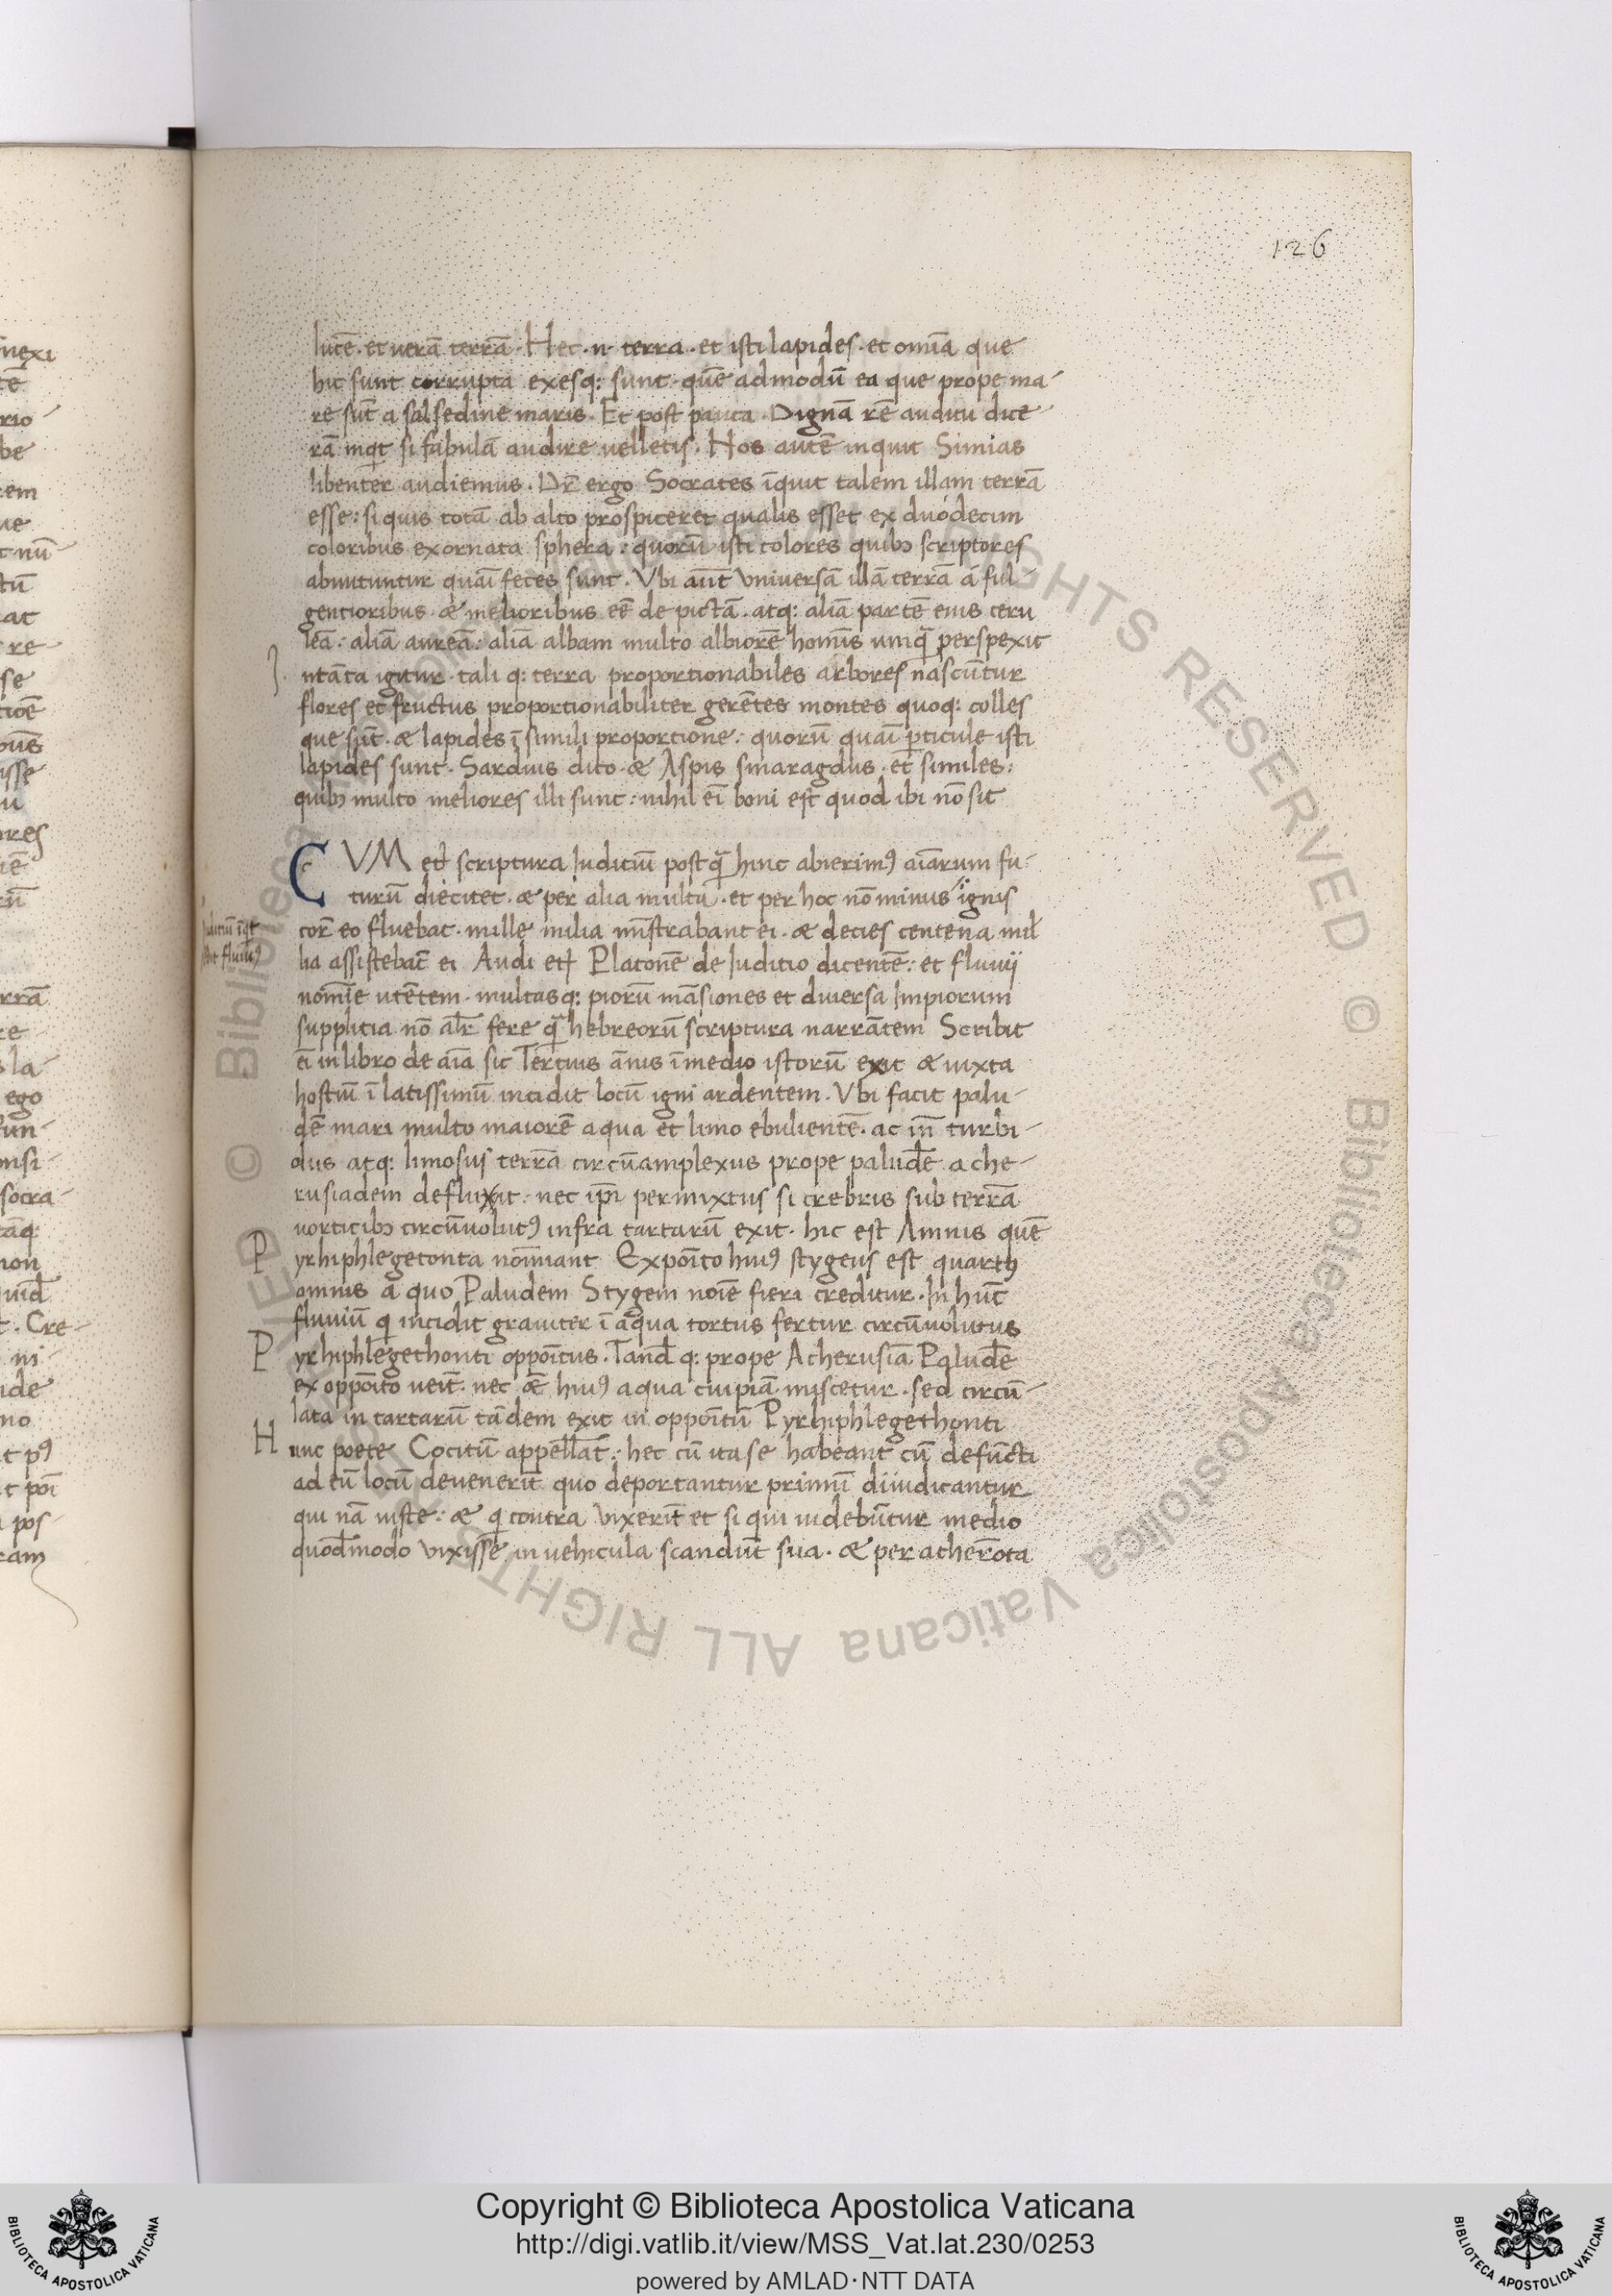 126
lucē. et uerā terrā. Hec. n. terra. et isti lapides. et omīa que
hic sunt corrupta exesq: sunt. quē admodū ea que prope ma-
re sūt a salsedine maris. Et post pauca. Dignā rē auditu dice
rā inqt si fabulā audire uelletis. Nos autē inquit Simias
libenter audiemus. Dr̄ ergo Socrates īquit talem illam terrā
esse: si quis totā ab alto prospiceret qualis esset ex duódecim
coloribus exornata sphera: quorū isti colores quibꝫ scriptores
abuutuntur quāi feces sunt. Vbi aūt Vniuersā illā terrā á ful-
gentioribus. æ melioribus eē de pictā. atq: aliā partē eius ceru
leā: aliā aureā: aliā albam multo albiorē homīs unq̄ perspexit
ntāta igitur. tali q: terra proportionabiles arbores nascūtur
flores et fructus proportionabiliter gerētes montes quoq: colles
que sūt. æ lapides ī simili proportione: quorū quāi ꝑticule isti
lapides sunt. Sardius dico. æ Aspis smaragdus. et similes:
quibꝫ multo meliores illi sunt: nihil eī boni est quod ibi nō sit
CVM etꝭ scriptura Iuditiū postq̄ hinc abierimꝰ aīarum fu-
turū diècitet. æ per alia multa. et per hoc nō minus ignis
cor̄ eo fluebat. mille milia mīstrabant ei. æ decies centena mil
lia assistebāt ei Audi etꝭ Platonē de Iuditio dicentē: et fluuij
nomīe utētem. multasq: piorū māsiones et diuersa Impiorum
supplitia nō alr̄ fere q̄ hebreorū scriptura narrātem Scribit
eī in libro de aīa sic Tertius ānis ī medio istorū exit æ iuxta
hostiū ī latissimū incidit locū igni ardentem. Vbi facit palu-
dē mari multo maiorē aqua et limo ebulientē. ac iñ turbi-
dus atq: limosus terrā circūamplexus prope paludē ache-
rusiadem defluxit. nec ip̄i permixtus si crebris sub terrā
uorticibꝫ circūuolutꝰ infra tartarū exit. hic est Amnis quē
Pyrhiphlegetonta nomīant Expoīto huiꝰ stygeus est quartꝰ
amnis a quo Paludem Stygem noīe fieri creditur. In hūc
fluuiū q incidit grauiter ī aqua tortus fertur circūuolutus
Pyrhiphlegethonti oppoītus. Tand q: prope Acherusiā Paludē
ex oppoīto ueīt. nec æ huiꝰ aqua cuipiā miscetur. sed circū-
lata in tartarū tādem exit in oppoītū Pyrhiphlegethonti
Hunc poete Cocitū appellāt: hec cū ita se habeant cū defūcti
ad eū locū deuenerīt quo deportantur primū diiudicantur
qui nā iuste: æ q contra uixerīt et si qui uidebūtur medio
quodmodo uixisse in uehicula scandūt sua. æ per acherōta
Copyright © Biblioteca Apostolica Vaticana
http://digi.vatlib.it/view/MSS_Vat.lat.230/0253
powered by AMLAD·NTT DATA